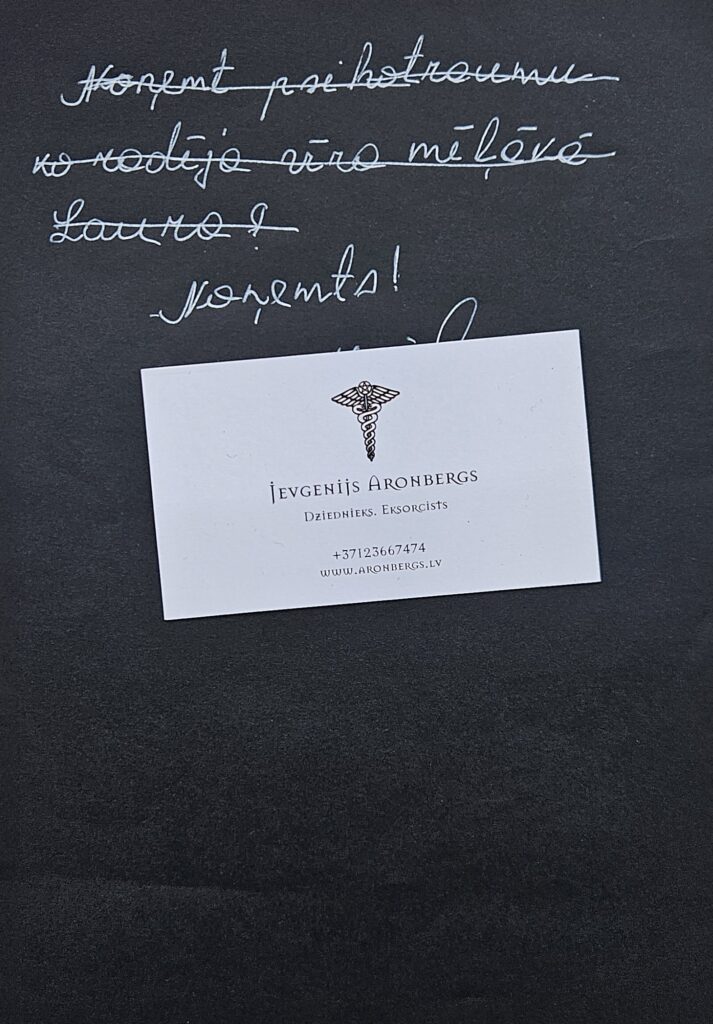 Noņemt psihotraumu
ko radīja vīra mīļākā
Laura!
Noņemts!
Jevgenijs Aronbergs
Dziednieks. Eksorcists
+37123667474
www.aronbergs.lv